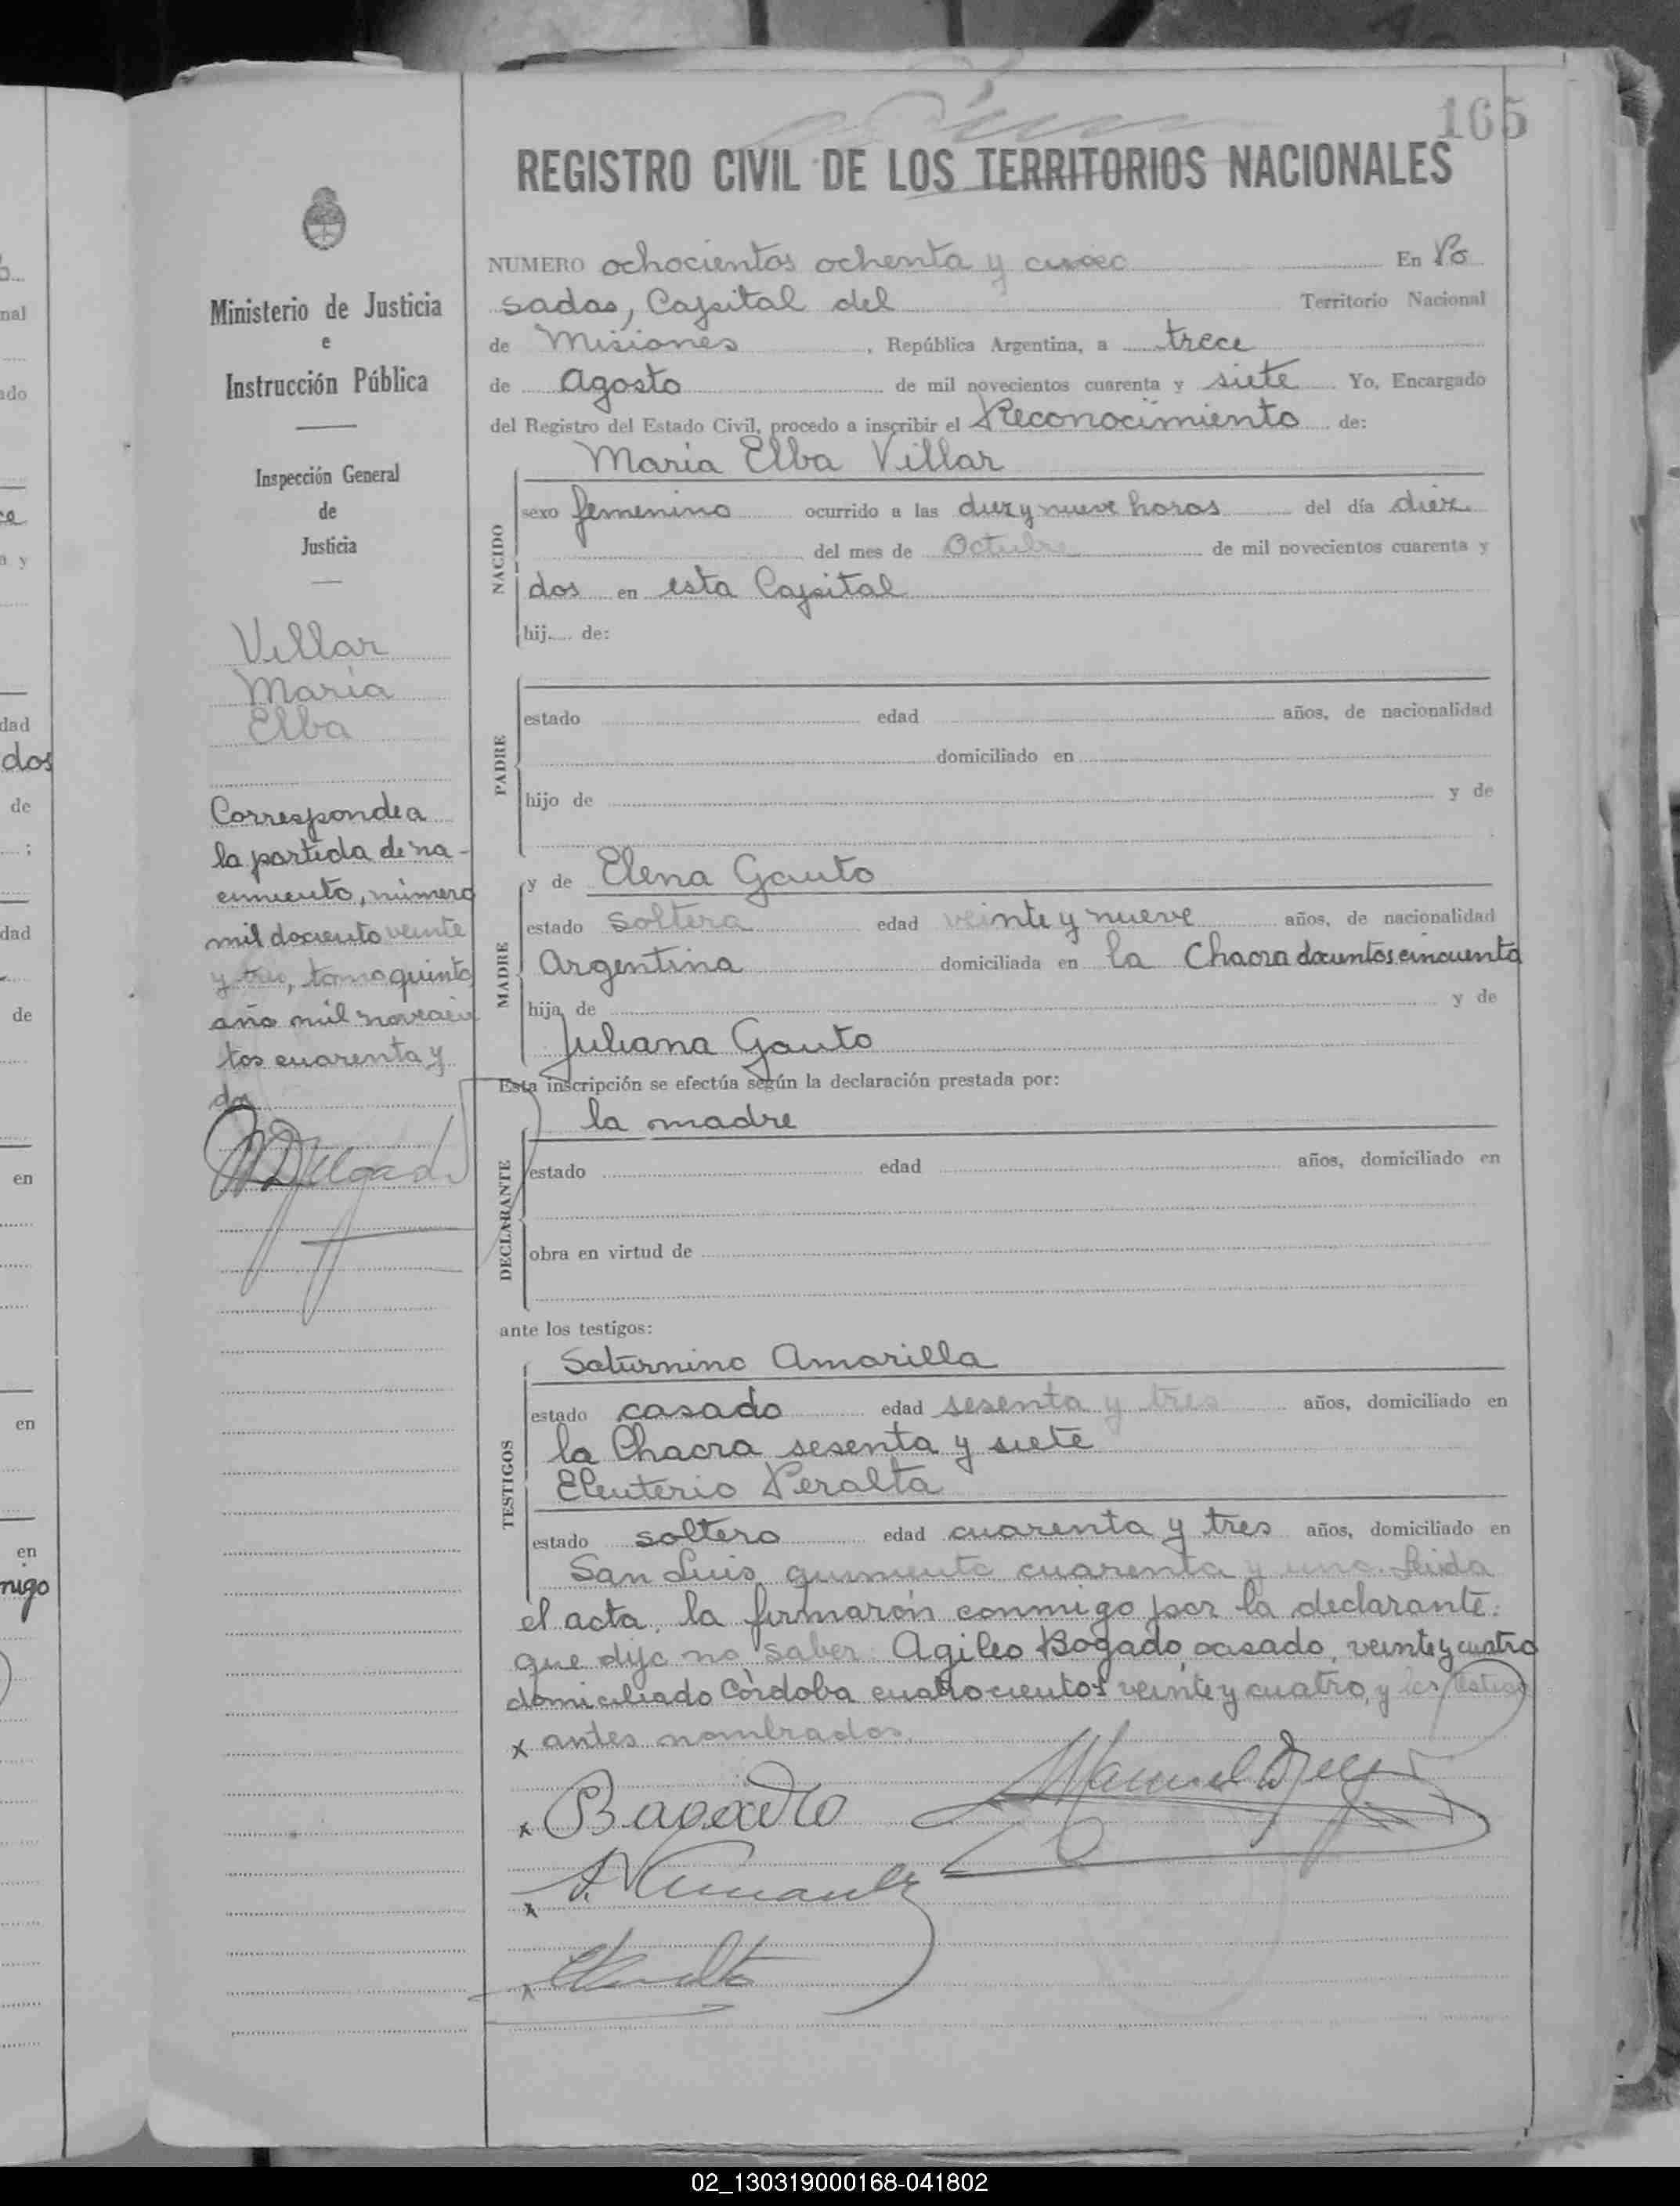 165
REGISTRO CIVIL DE LOS TERRITORIOS NACIONALES
Ministerio de Justicia
e
Instrucción Pública
Inspección General
de
Justicia
Villar
Maria
Elba
Corresponde a
la partida de na-
cimiento, número
mil dociento veinte
y tres, tomo quinto
año mil novecien
tos cuarenta y
dos
NUMERO ochocientos ochenta y cinco En Po
sadas, Capital del Territorio Nacional
de Misiones, República Argentina, a trece
de Agosto de mil novecientos cuarenta y siete Yo, Encargado
del Registro del Estado Civil, procedo a inscribir el Reconocimiento de:
Maria Elba Villar
NACIDO
sexo femenino ocurrido a las diez y nueve horas del día diez
del mes de Octubre de mil novecientos cuarenta y
dos en esta Capital
hij.... de:
PADRE
estado edad años, de nacionalidad
domiciliado en
hijo de y de
MADRE
y de Elena Gauto
estado soltera edad veinte y nueve años, de nacionalidad
Argentina domiciliada en la Chacra docuntos cincuenta
hija de y de
Juliana Gauto
Esta inscripción se efectúa según la declaración prestada por:
la madre
DECLARANTE
estado edad años, domiciliado en
obra en virtud de
ante los testigos:
TESTIGOS
Saturnino Amarilla
estado casado edad sesenta y tres años, domiciliado en
la Chacra sesenta y siete
Eleuterio Peralta
estado soltero edad cuarenta y tres años, domiciliado en
San Luis quiniento cuarenta y uno. Leida
el acta, la firmarón conmigo por la declarante:
que dijo no saber Agileo Bogado, casado, veinte y cuatro
domiciliado Córdoba cuatrocientos veinte y cuatro, y los testigos
x antes nombrados.
x Bogado
x
x
dos
de
dad
en
en
en
migo
02_130319000168-041802